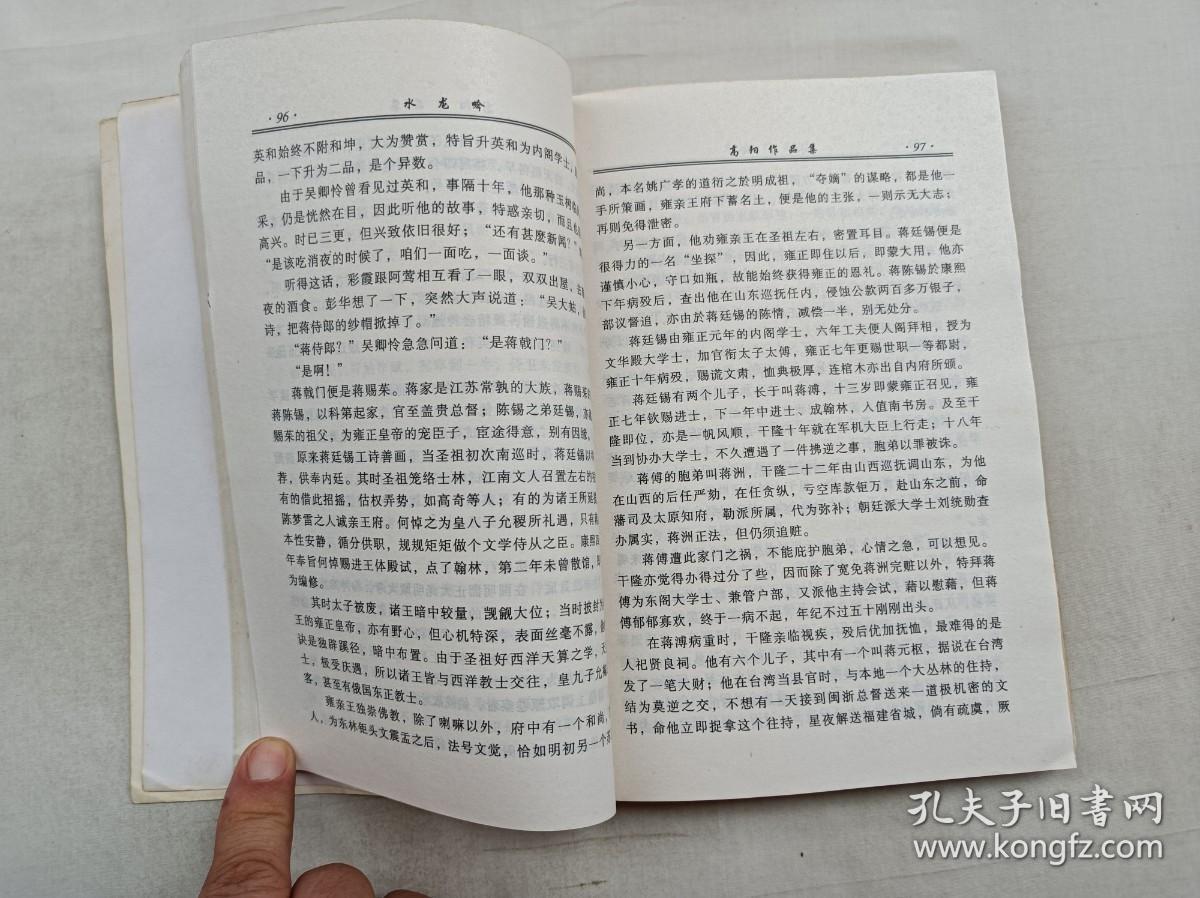 ·96·
水龙吟
英和始终不附和坤，大为赞赏，特旨升英和为内阁学士，
品，一下升为二品，是个异数。
由于吴卿怜曾看见过英和，事隔十年，他那种玉树临
采，仍是恍然在目，因此听他的故事，特感亲切，而且
高兴。时已三更，但兴致依旧很好；“还有甚麽新闻？”
“是该吃消夜的时候了，咱们一面吃，一面谈。”
听得这话，彩霞跟阿莺相互看了一眼，双双出屋，去
夜的酒食。彭华想了一下，突然大声说道：“吴大
诗，把蒋侍郎的纱帽掀掉了。”
“蒋侍郎？”吴卿怜急急问道：“是蒋戟门？”
“是啊！”
蒋戟门便是蒋赐茱。蒋家是江苏常孰的大族，蒋赐茱
蒋陈锡，以科第起家，官至盖贵总督；陈锡之弟廷锡，
赐茱的祖父，为雍正皇帝的宠臣子，宦途得意，别有因缘。
原来蒋廷锡工诗善画，当圣祖初次南巡时，蒋廷锡以
荐，供奉内廷。其时圣祖笼络士林，江南文人召置左右
有的借此招摇，估权弄势，如高奇等人；有的为诸王所延
陈梦雷之人诚亲王府。何悼之为皇八子允稷所礼遇，只有
本性安静，循分供职，规规矩矩做个文学侍从之臣。康熙
年奉旨何悼赐进王体殿试，点了翰林，第二年未曾散馆，
为编修。
其时太子被废，诸王暗中较量，觊觎大位；当时披封为
王的雍正皇帝，亦有野心，但心机特深，表面丝毫不露，
诀是独辟蹊径，暗中布置。由于圣祖好西洋天算之学，
士，极受庆遇，所以诸王皆与西洋教士交往，皇九子允
客，甚至有俄国东正教士。
雍亲王独崇佛教，除了喇嘛以外，府中有一个和尚，
人，为东林钜头文震孟之后，法号文觉，恰如明初另一个
高阳作品集
·97·
尚，本名姚广孝的道衍之於明成祖，“夺嫡”的谋略，都是他一
手所策画，雍亲王府下蓄名土，便是他的主张，一则示无大志；
再则免得泄密。
另一方面，他劝雍亲王在圣祖左右，密置耳目。蒋廷锡便是
很得力的一名“坐探”，因此，雍正即住以后，即蒙大用，他亦
谨慎小心，守口如瓶，故能始终获得雍正的恩礼。蒋陈锡於康熙
下年病殁后，查出他在山东巡抚任内，侵蚀公款两百多万银子，
部议督追，亦由於蒋廷锡的陈情，减偿一半，别无处分。
蒋廷锡由雍正元年的内阁学士，六年工夫便人阁拜相，授为
文华殿大学士，加官衔太子太傅，雍正七年更赐世职一等都尉，
雍正十年病殁，赐谎文肃，恤典极厚，连棺木亦出自内府所颁。
蒋廷锡有两个儿子，长于叫蒋溥，十三岁即蒙雍正召见，雍
正七年钦赐进士，下一年中进土、成翰林，人值南书房。及至干
隆即位，亦是一帆风顺，干隆十年就在军机大臣上行走；十八年
当到协办大学士，不久遭遇了一件拂逆之事，胞弟以罪被诛。
蒋傅的胞弟叫蒋洲，干隆二十二年由山西巡抚调山东，为他
在山西的后任严劾，在任贪纵，亏空库款钜万，赴山东之前，命
藩司及太原知府，勒派所属，代为弥补；朝廷派大学士刘统勋查
办属实，蒋洲正法，但仍须追赃。
蒋傅遭此家门之祸，不能庇护胞弟，心情之急，可以想见。
干隆亦觉得办得过分了些，因而除了宽免蒋洲完赃以外，特拜蒋
傅为东阁大学士、兼管户部，又派他主持会试，藉以慰藉，但蒋
傅郁郁寡欢，终于一病不起，年纪不过五十刚刚出头。
在蒋溥病重时，干隆亲临视疾，殁后优加抚恤，最难得的是
人祀贤良祠。他有六个儿子，其中有一个叫蒋元枢，据说在台湾
发了一笔大财；他在台湾当县官时，与本地一个大丛林的住持，
结为莫逆之交，不想有一天接到闽浙总督送来一道极机密的文
书，命他立即捉拿这个往持，星夜解送福建省城，倘有疏虞，厥
孔夫子旧书网
www.kongfz.com